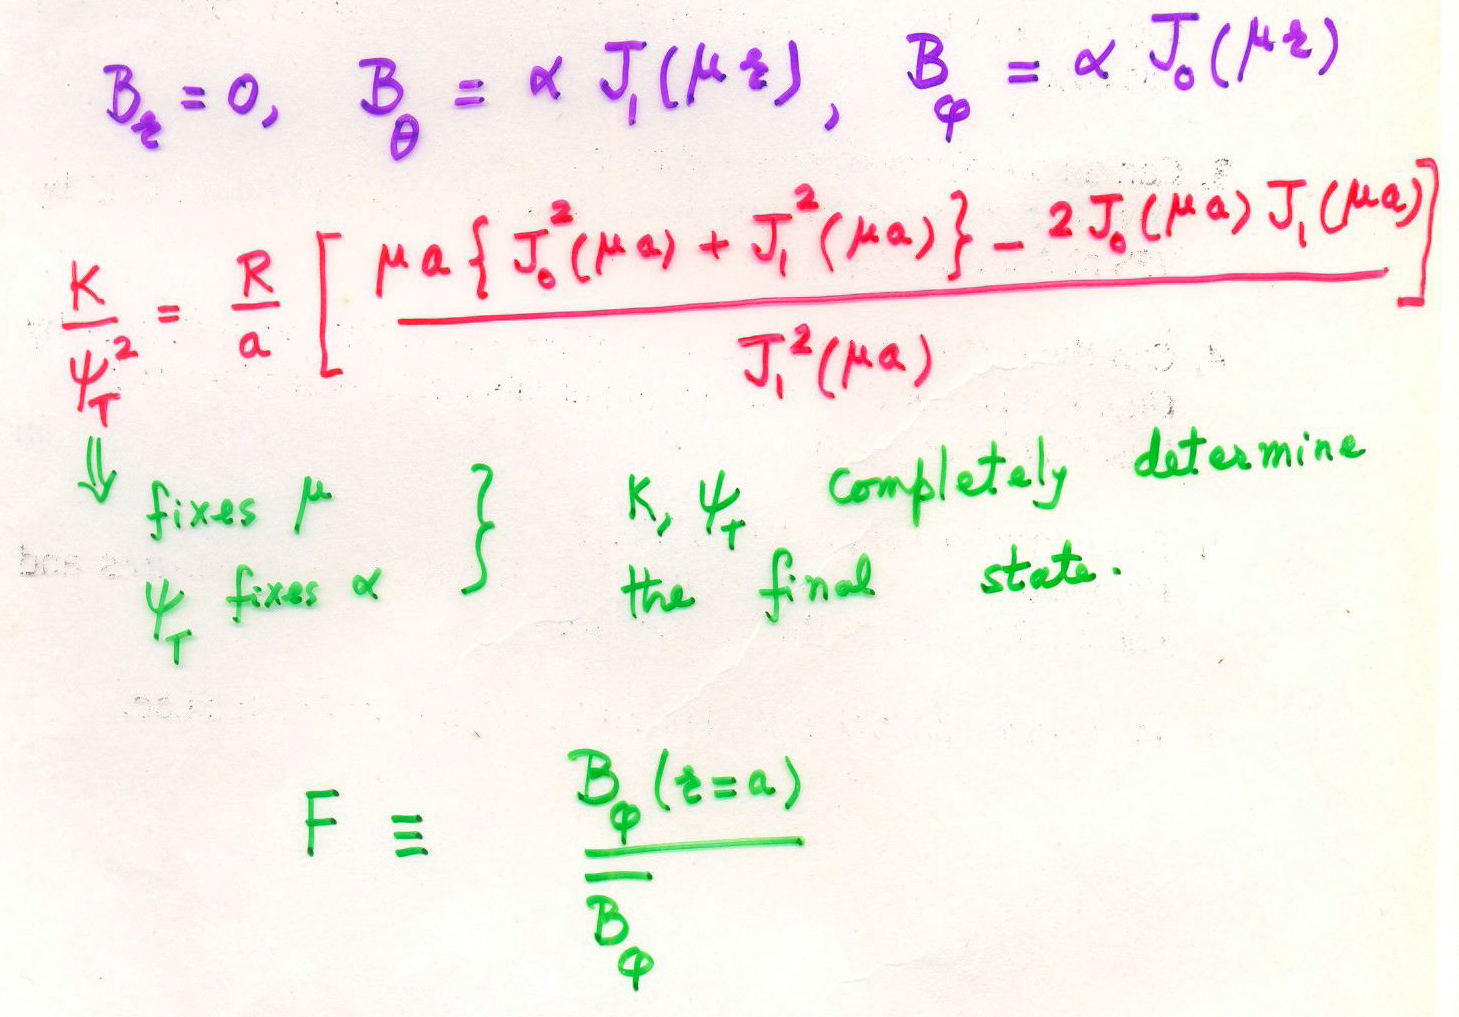 B_r = 0, B_θ = α J_1(μr), B_φ = α J_0(μr)
K/ψ_T^2 = R/a [ (μa{J_0^2(μa) + J_1^2(μa)} − 2J_0(μa)J_1(μa)) / J_1^2(μa) ]
⇓ fixes μ } K, ψ_T completely determine
ψ_T fixes α the final state.
F ≡ B_φ(r=a) / \overline{B}_φ